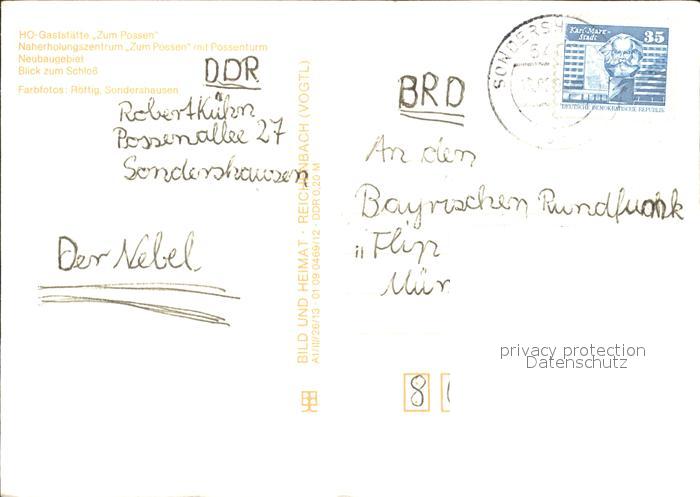 HO-Gaststätte „Zum Possen"
Naherholungszentrum „Zum Possen" mit Possenturm
Neubaugebiet
Blick zum Schloß
Farbfotos: Röttig, Sondershausen
DDR
Robert Kühn
Possenallee 27
Sondershausen
Der Nebel
BILD UND HEIMAT · REICHENBACH (VOGTL)
A1/III/26/13 · 01 09 0469/12 · DDR 0,20 M
SONDERSH
Karl-Marx-
Stadt
35
DEUTSCHE DEMOKRATISCHE REPUBLIK
BRD
An den
Bayrischen Rundfunk
„Flip
Mün
8
privacy protection
Datenschutz